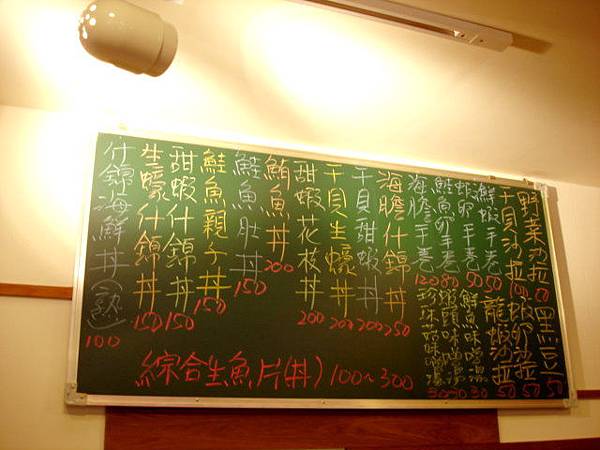 野菜沙拉 50
黑豆 50
干貝沙拉 100
蝦卵沙拉 50
鮮蝦手卷 50
龍蝦沙拉 50
蝦卵手卷 50
鮮魚味噌湯 30
鮭魚卵手卷 80
蝦頭味噌湯 30
海膽手卷 120
珍珠菇味噌湯 30
海膽什錦丼 250
干貝甜蝦丼 200
干貝生蠔丼 200
甜蝦花枝丼 200
鮪魚丼 200
鮭魚肚丼 150
鮭魚親子丼 150
甜蝦什錦丼 150
生蠔什錦丼 150
什錦海鮮丼(熟) 100
綜合生魚片(丼) 100~300